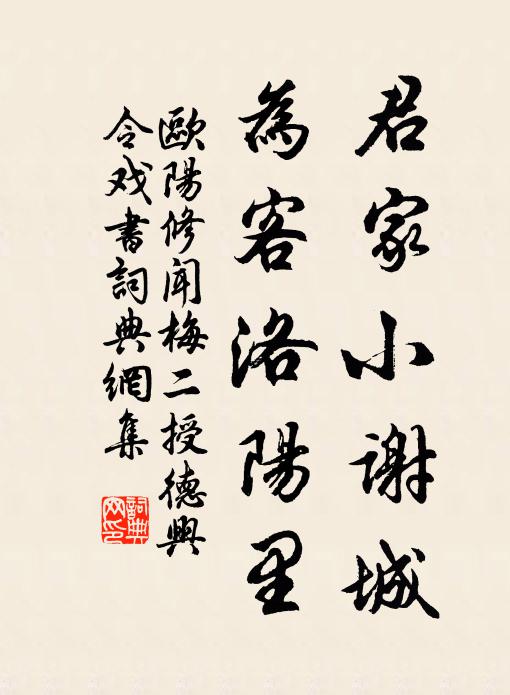 君家小谢城
為客洛陽里
歐陽修闻梅二授德興
令戏書詞典網集
詞典
网印